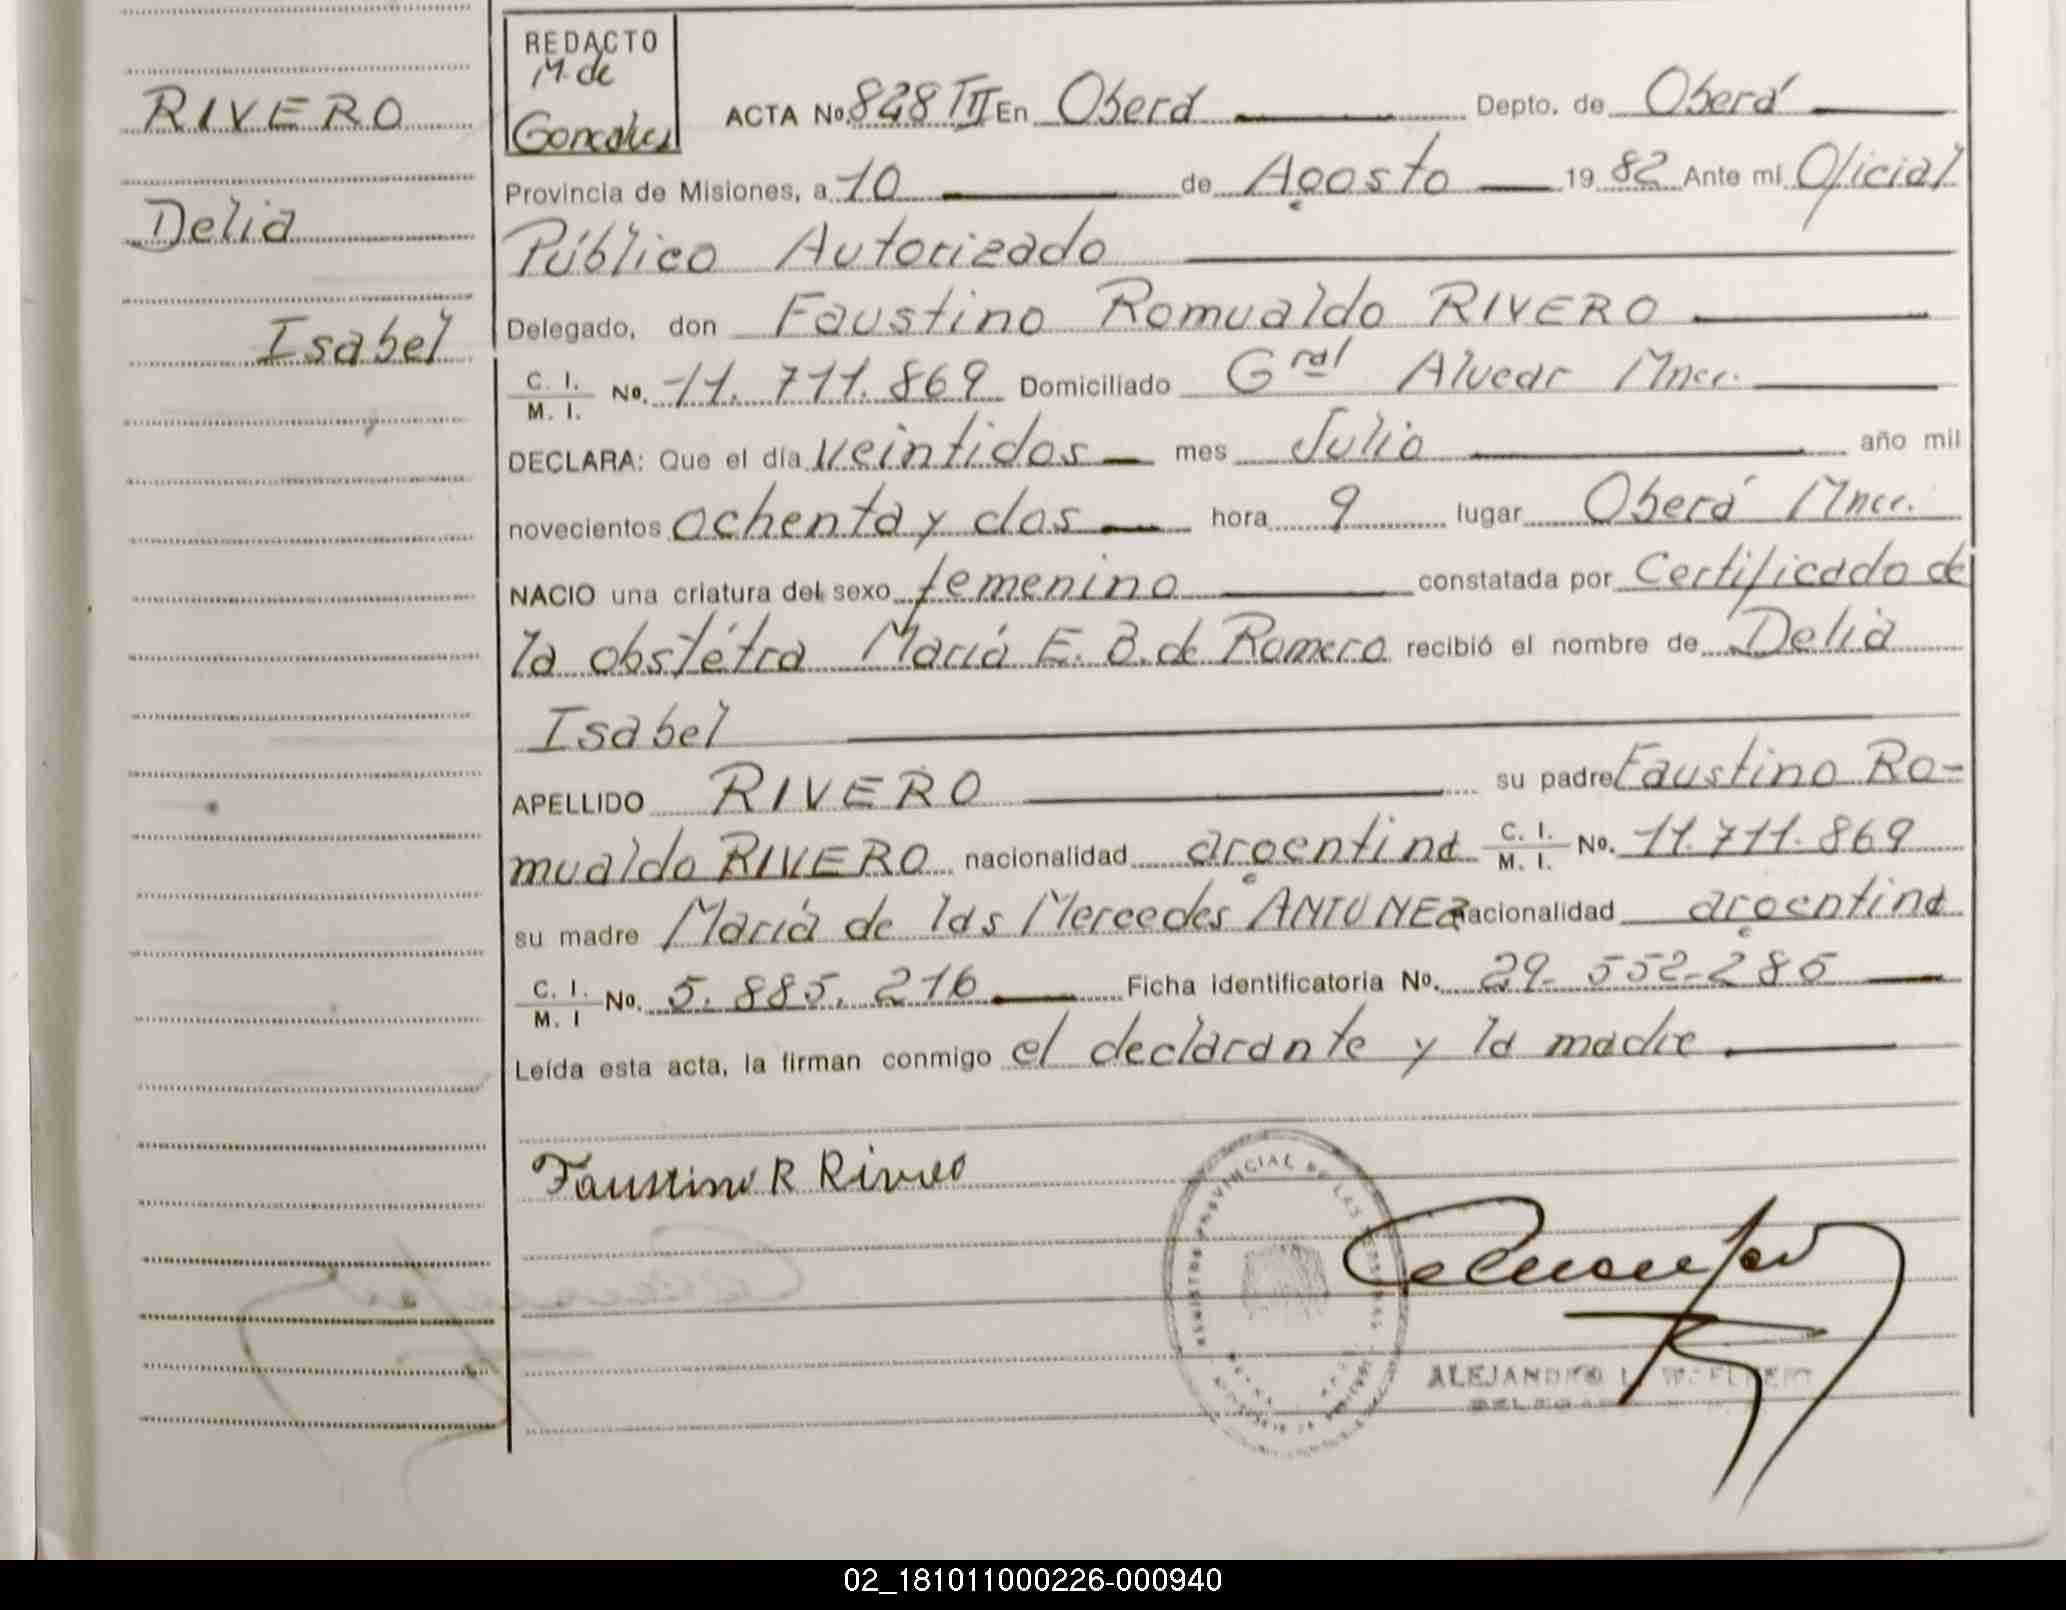 RIVERO
Delia
Isabel
REDACTO
M. de
Gonzalez
ACTA No. 828 III En Oberá Depto. de Oberá
Provincia de Misiones, a 10 de Agosto 19 82 Ante mí Oficial
Público Autorizado
Delegado, don Faustino Romualdo RIVERO
C. I. / M. I. No. 11.711.869 Domiciliado Gral Alvear Mnes.
DECLARA: Que el día veintidos mes Julio año mil
novecientos ochenta y dos hora 9 lugar Oberá Mnes.
NACIO una criatura del sexo femenino constatada por Certificado de
la obstétra María E. B. de Romero recibió el nombre de Delia
Isabel
APELLIDO RIVERO su padre Faustino Ro-
mualdo RIVERO nacionalidad argentina C. I. / M. I. No. 11.711.869
su madre María de las Mercedes ANTUNEZ nacionalidad argentina
C. I. / M. I No. 5.885.216 Ficha identificatoria No. 29-552-286
Leída esta acta, la firman conmigo el declarante y la madre
Faustino R Rivero
REGISTRO PROVINCIAL DE LAS PERSONAS
ALEJANDRO
02_181011000226-000940